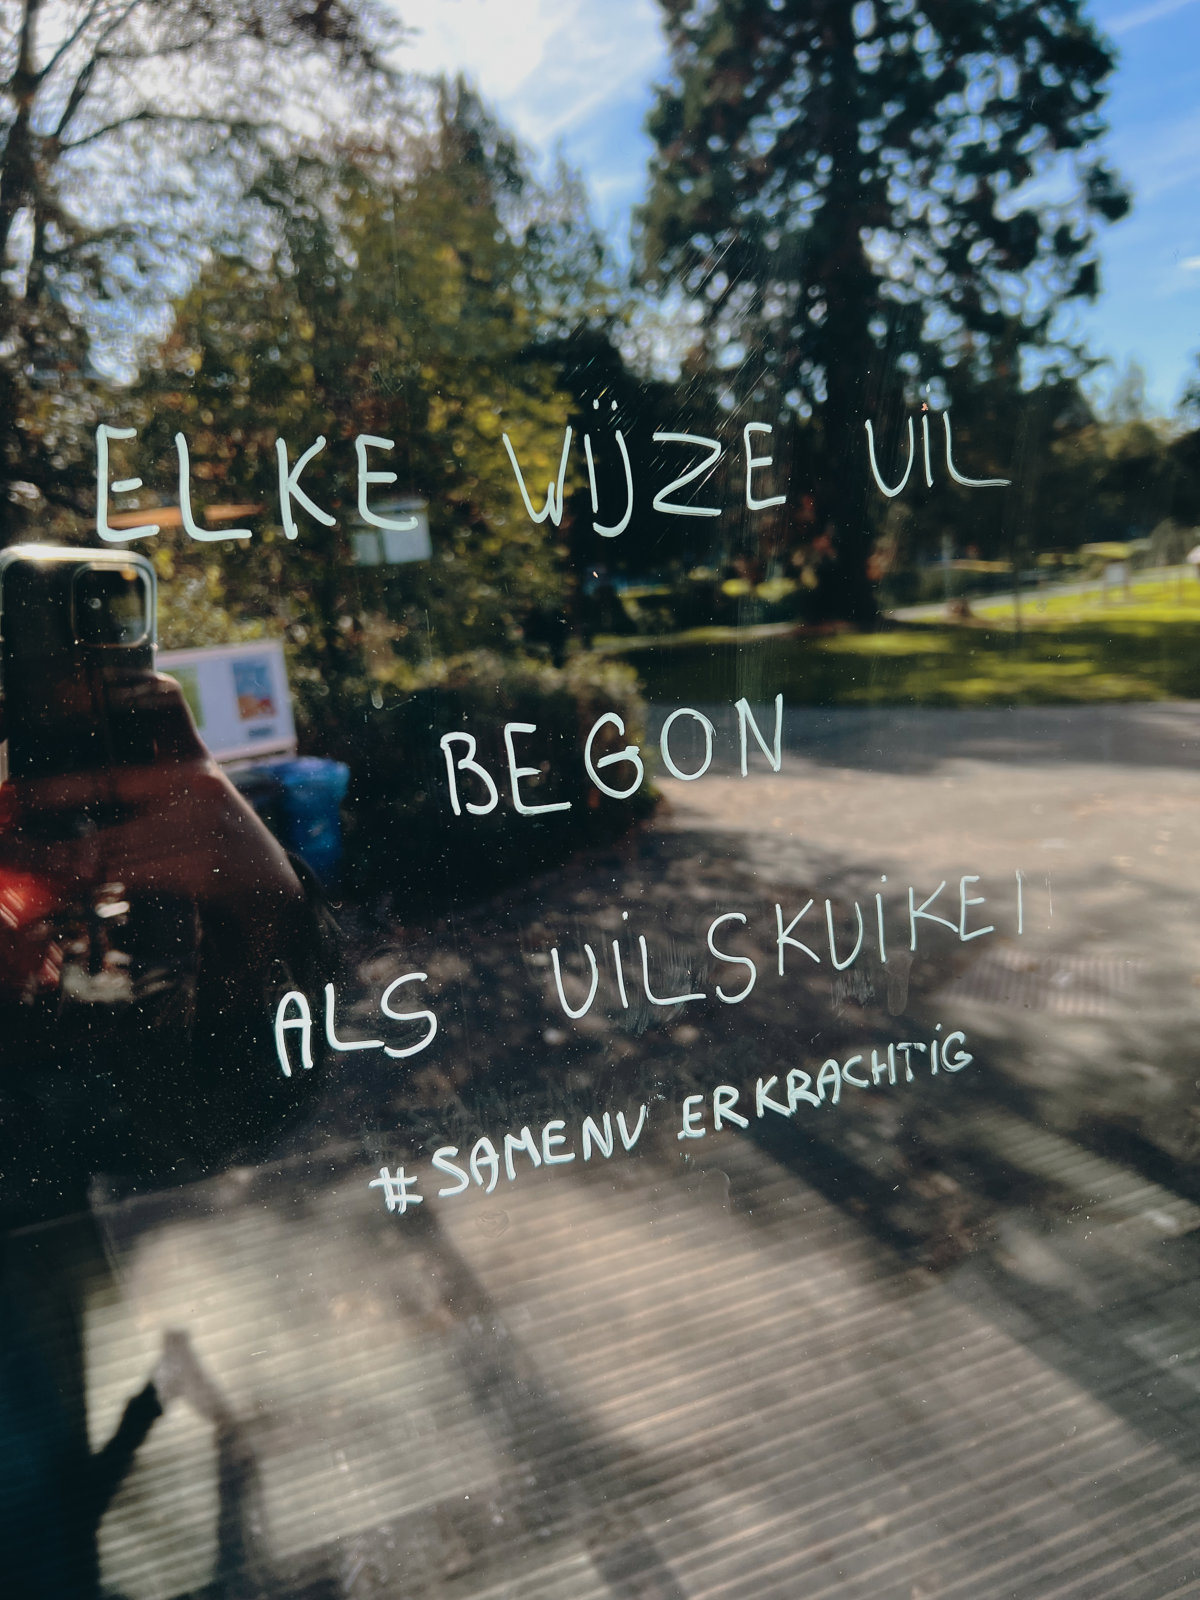 ELKE WIJZE UIL
BEGON
ALS UILSKUIKEN
#SAMENVERKRACHTIG